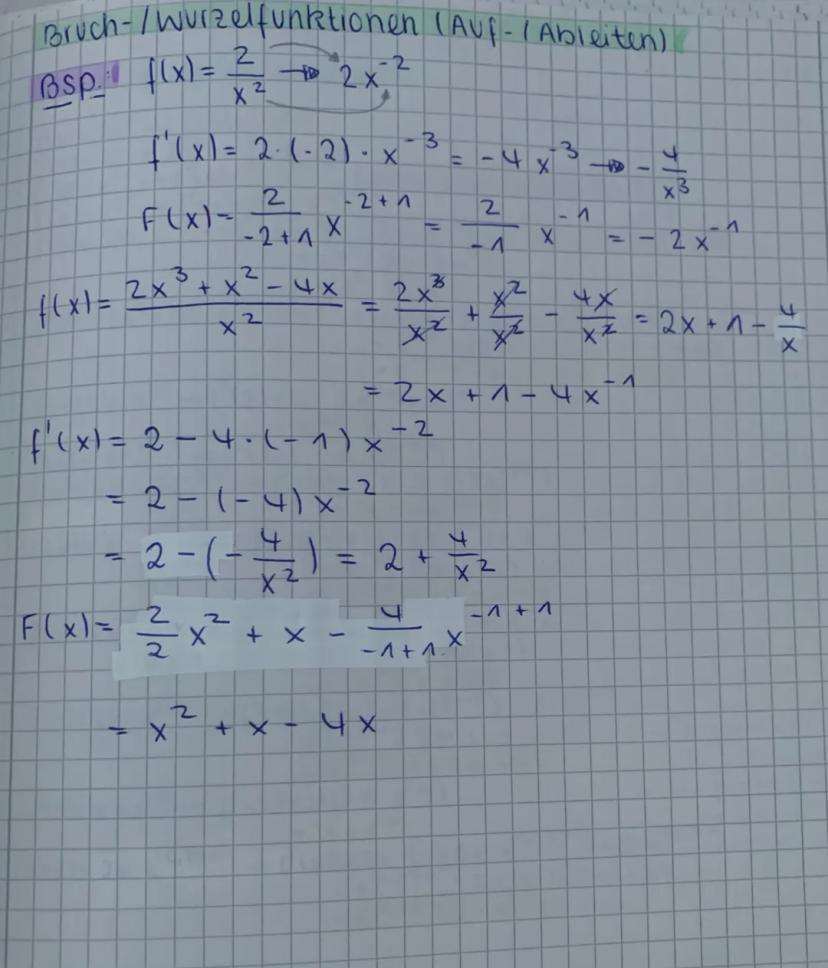 Bruch-/Wurzelfunktionen (Auf-/Ableiten)
Bsp.: f(x) = 2/x² → 2x⁻²
f'(x) = 2·(-2)·x⁻³ = -4x⁻³ → -4/x³
F(x) = 2/(-2+1) x⁻²⁺¹ = 2/-1 x⁻¹ = -2x⁻¹
f(x) = (2x³ + x² - 4x)/x² = 2x³/x² + x²/x² - 4x/x² = 2x + 1 - 4/x
= 2x + 1 - 4x⁻¹
f'(x) = 2 - 4·(-1)x⁻²
= 2 - (-4)x⁻²
= 2 - (-4/x²) = 2 + 4/x²
F(x) = 2/2 x² + x - 4/(-1+1) x⁻¹⁺¹
= x² + x - 4x